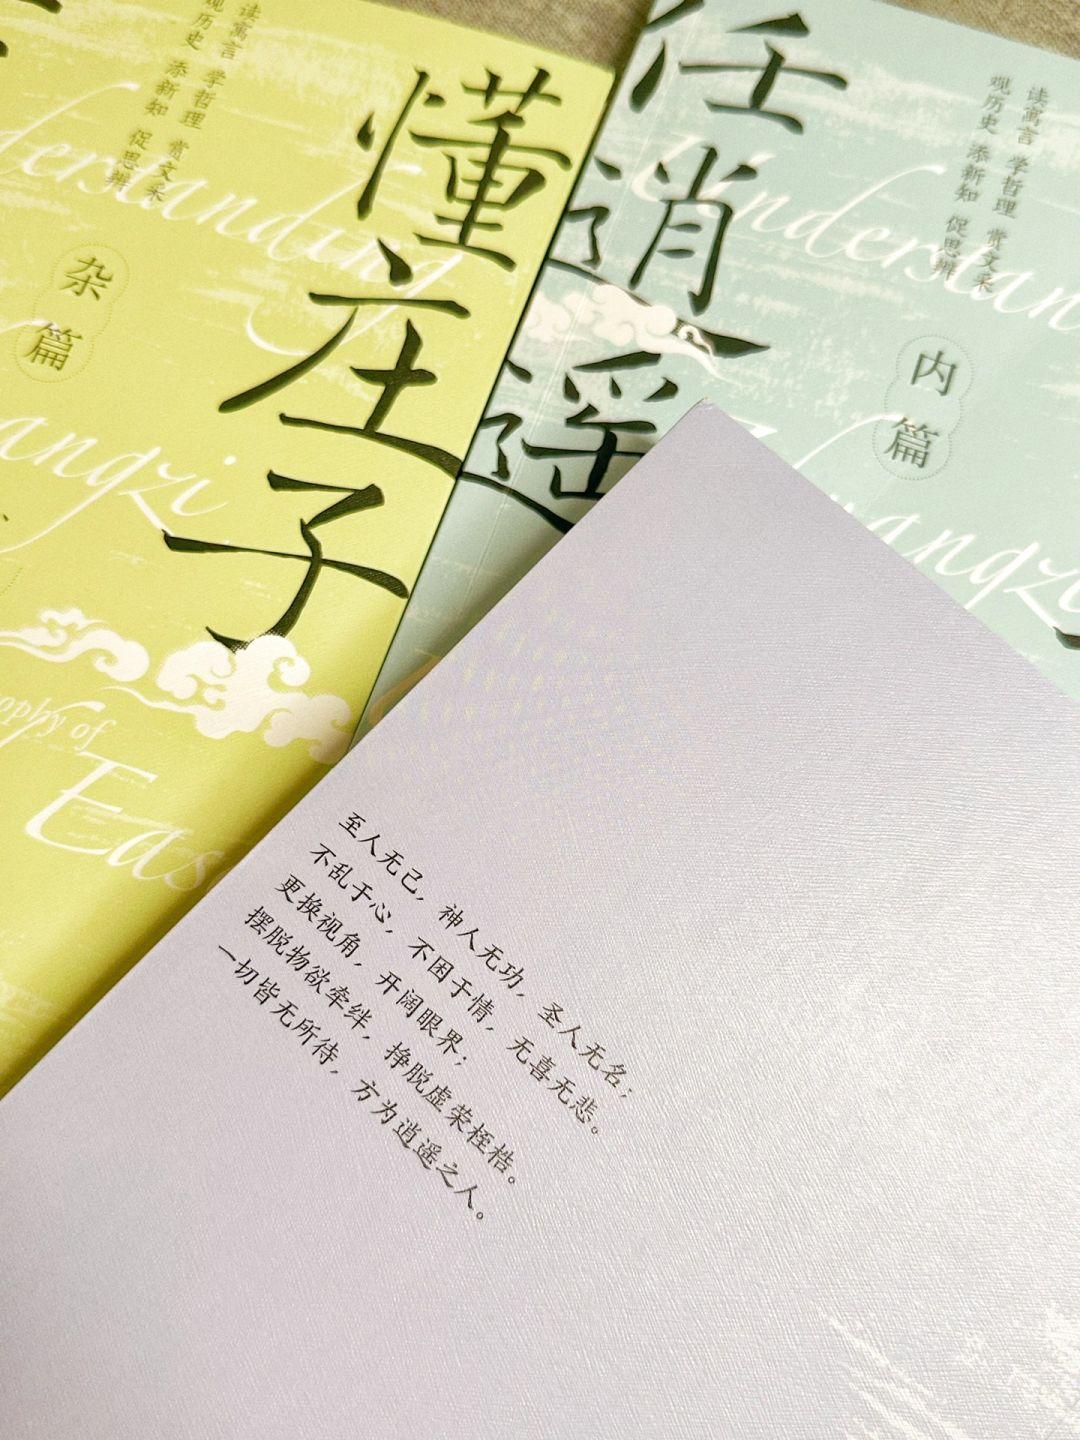 懂庄子
读寓言 学哲理 赏文采
观历史 添新知 促思辨
杂篇
derstanding
angzi
ophy of
Eas
任逍遥
读寓言 学哲理 赏文采
观历史 添新知 促思辨
内篇
Understan
huangzi
至人无己，神人无功，圣人无名；
不乱于心，不困于情，无喜无悲。
更换视角，开阔眼界；
摆脱物欲牵绊，挣脱虚荣桎梏。
一切皆无所待，方为逍遥之人。